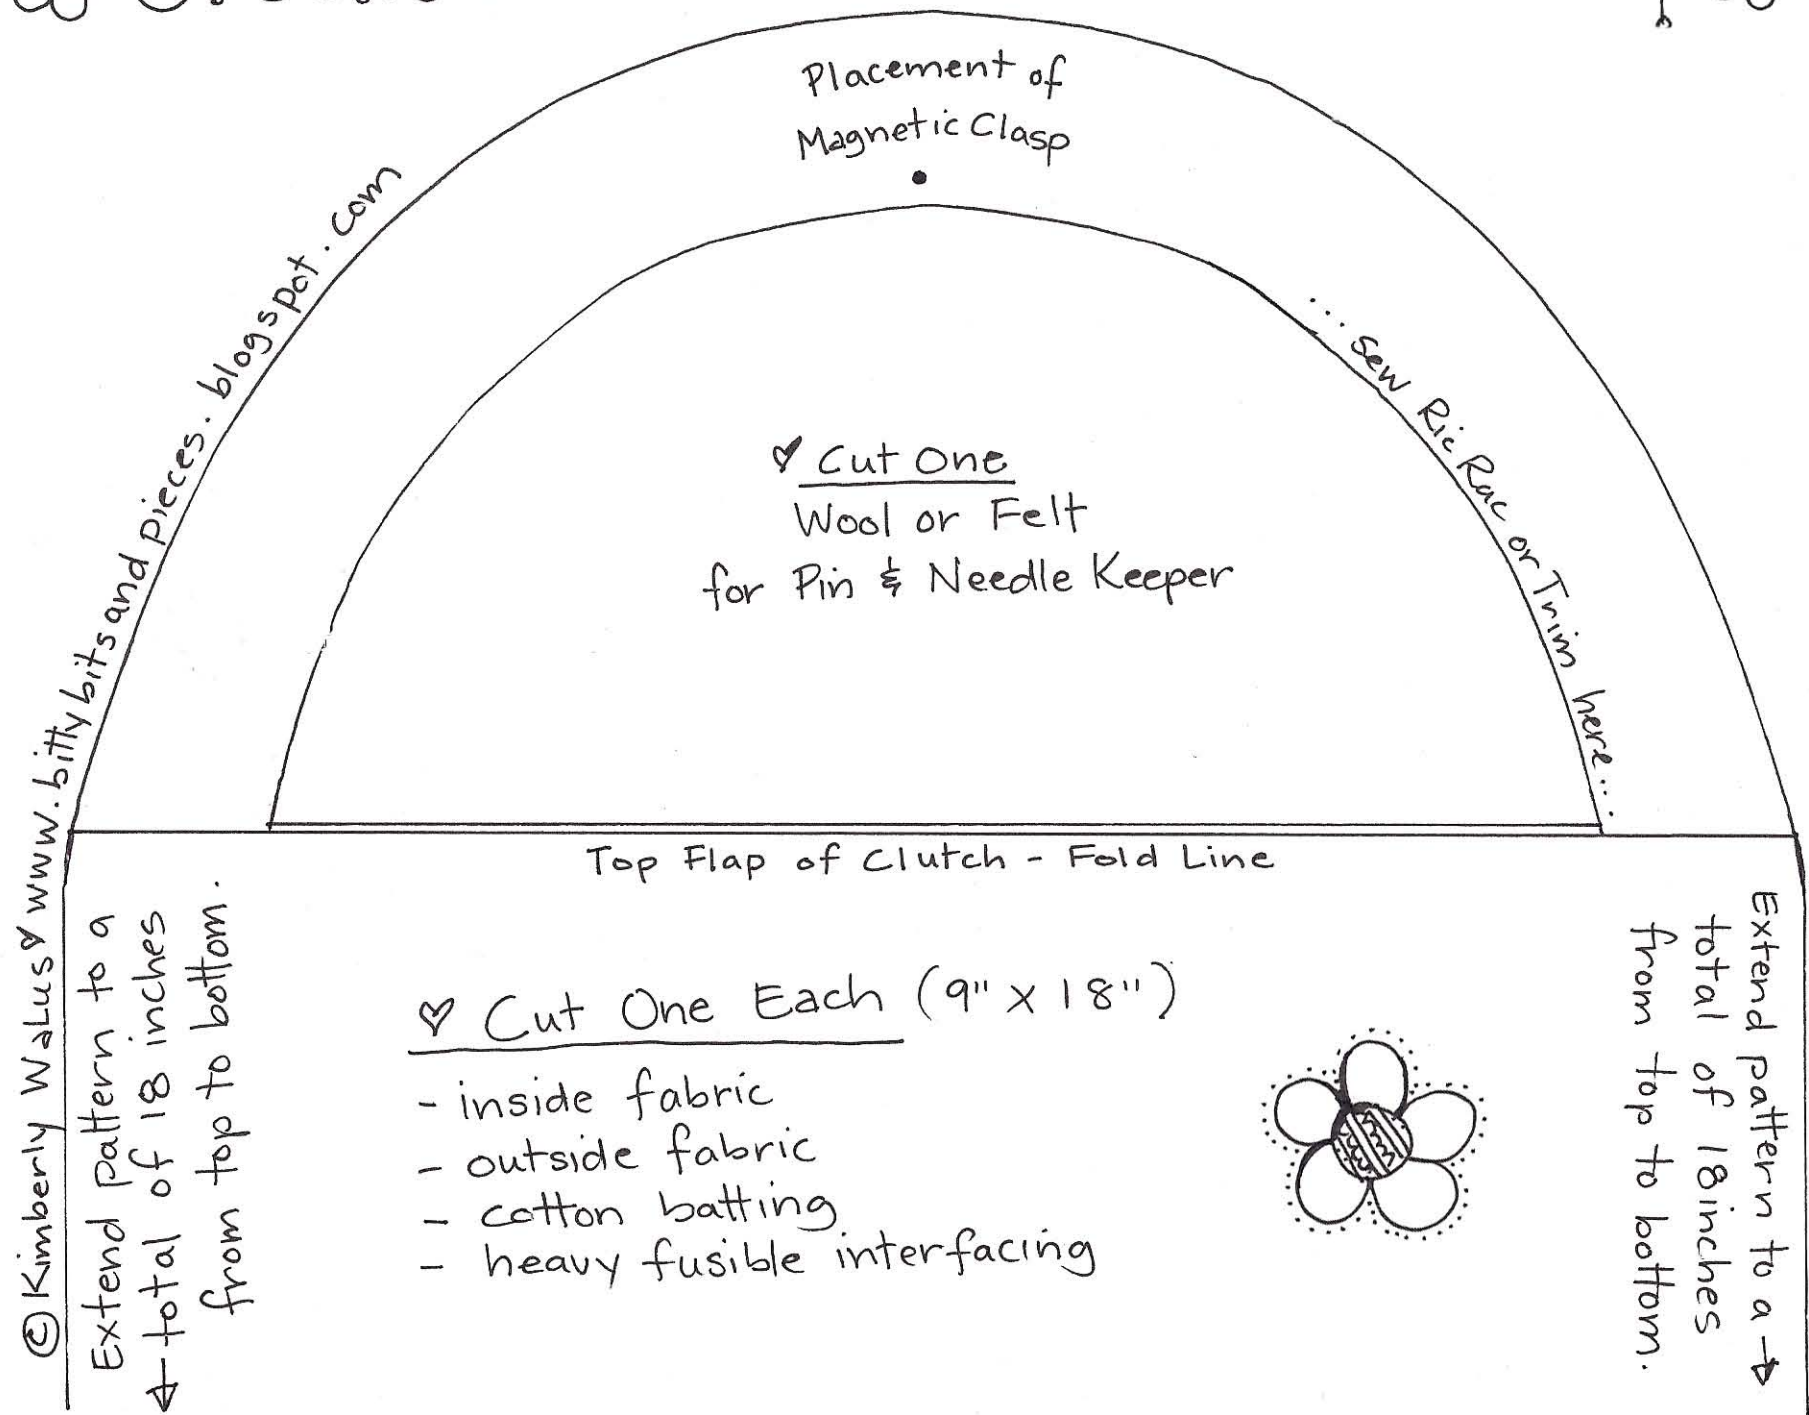 Placement of
Magnetic Clasp
©Kimberly Walus ♥ www.bittybitsandpieces.blogspot.com
...sew Ric Rac or Trim here...
♥ Cut One
Wool or Felt
for Pin & Needle Keeper
Top Flap of Clutch - Fold Line
Extend pattern to a
←total of 18 inches
from top to bottom.
♥ Cut One Each (9" x 18")
- inside fabric
- outside fabric
- cotton batting
- heavy fusible interfacing
Extend pattern to a →
total of 18inches
from top to bottom.